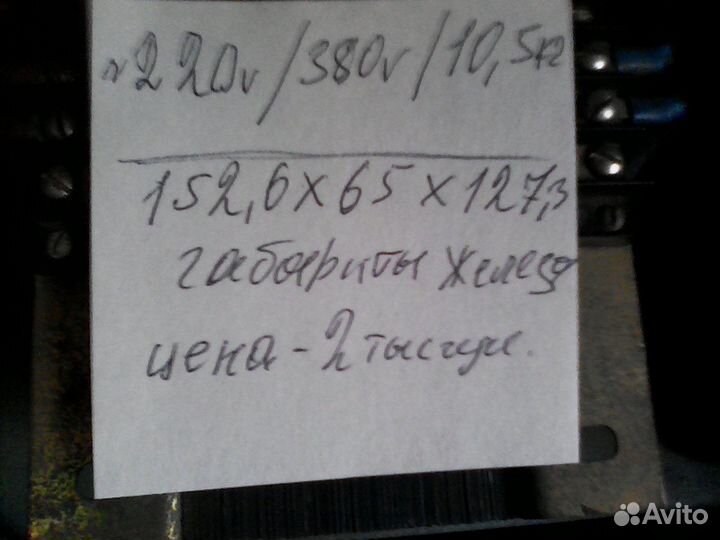 ~220v/380v/10,5кг
152,6x65x127,3
габариты железа
цена-2 тысячи.
Avito